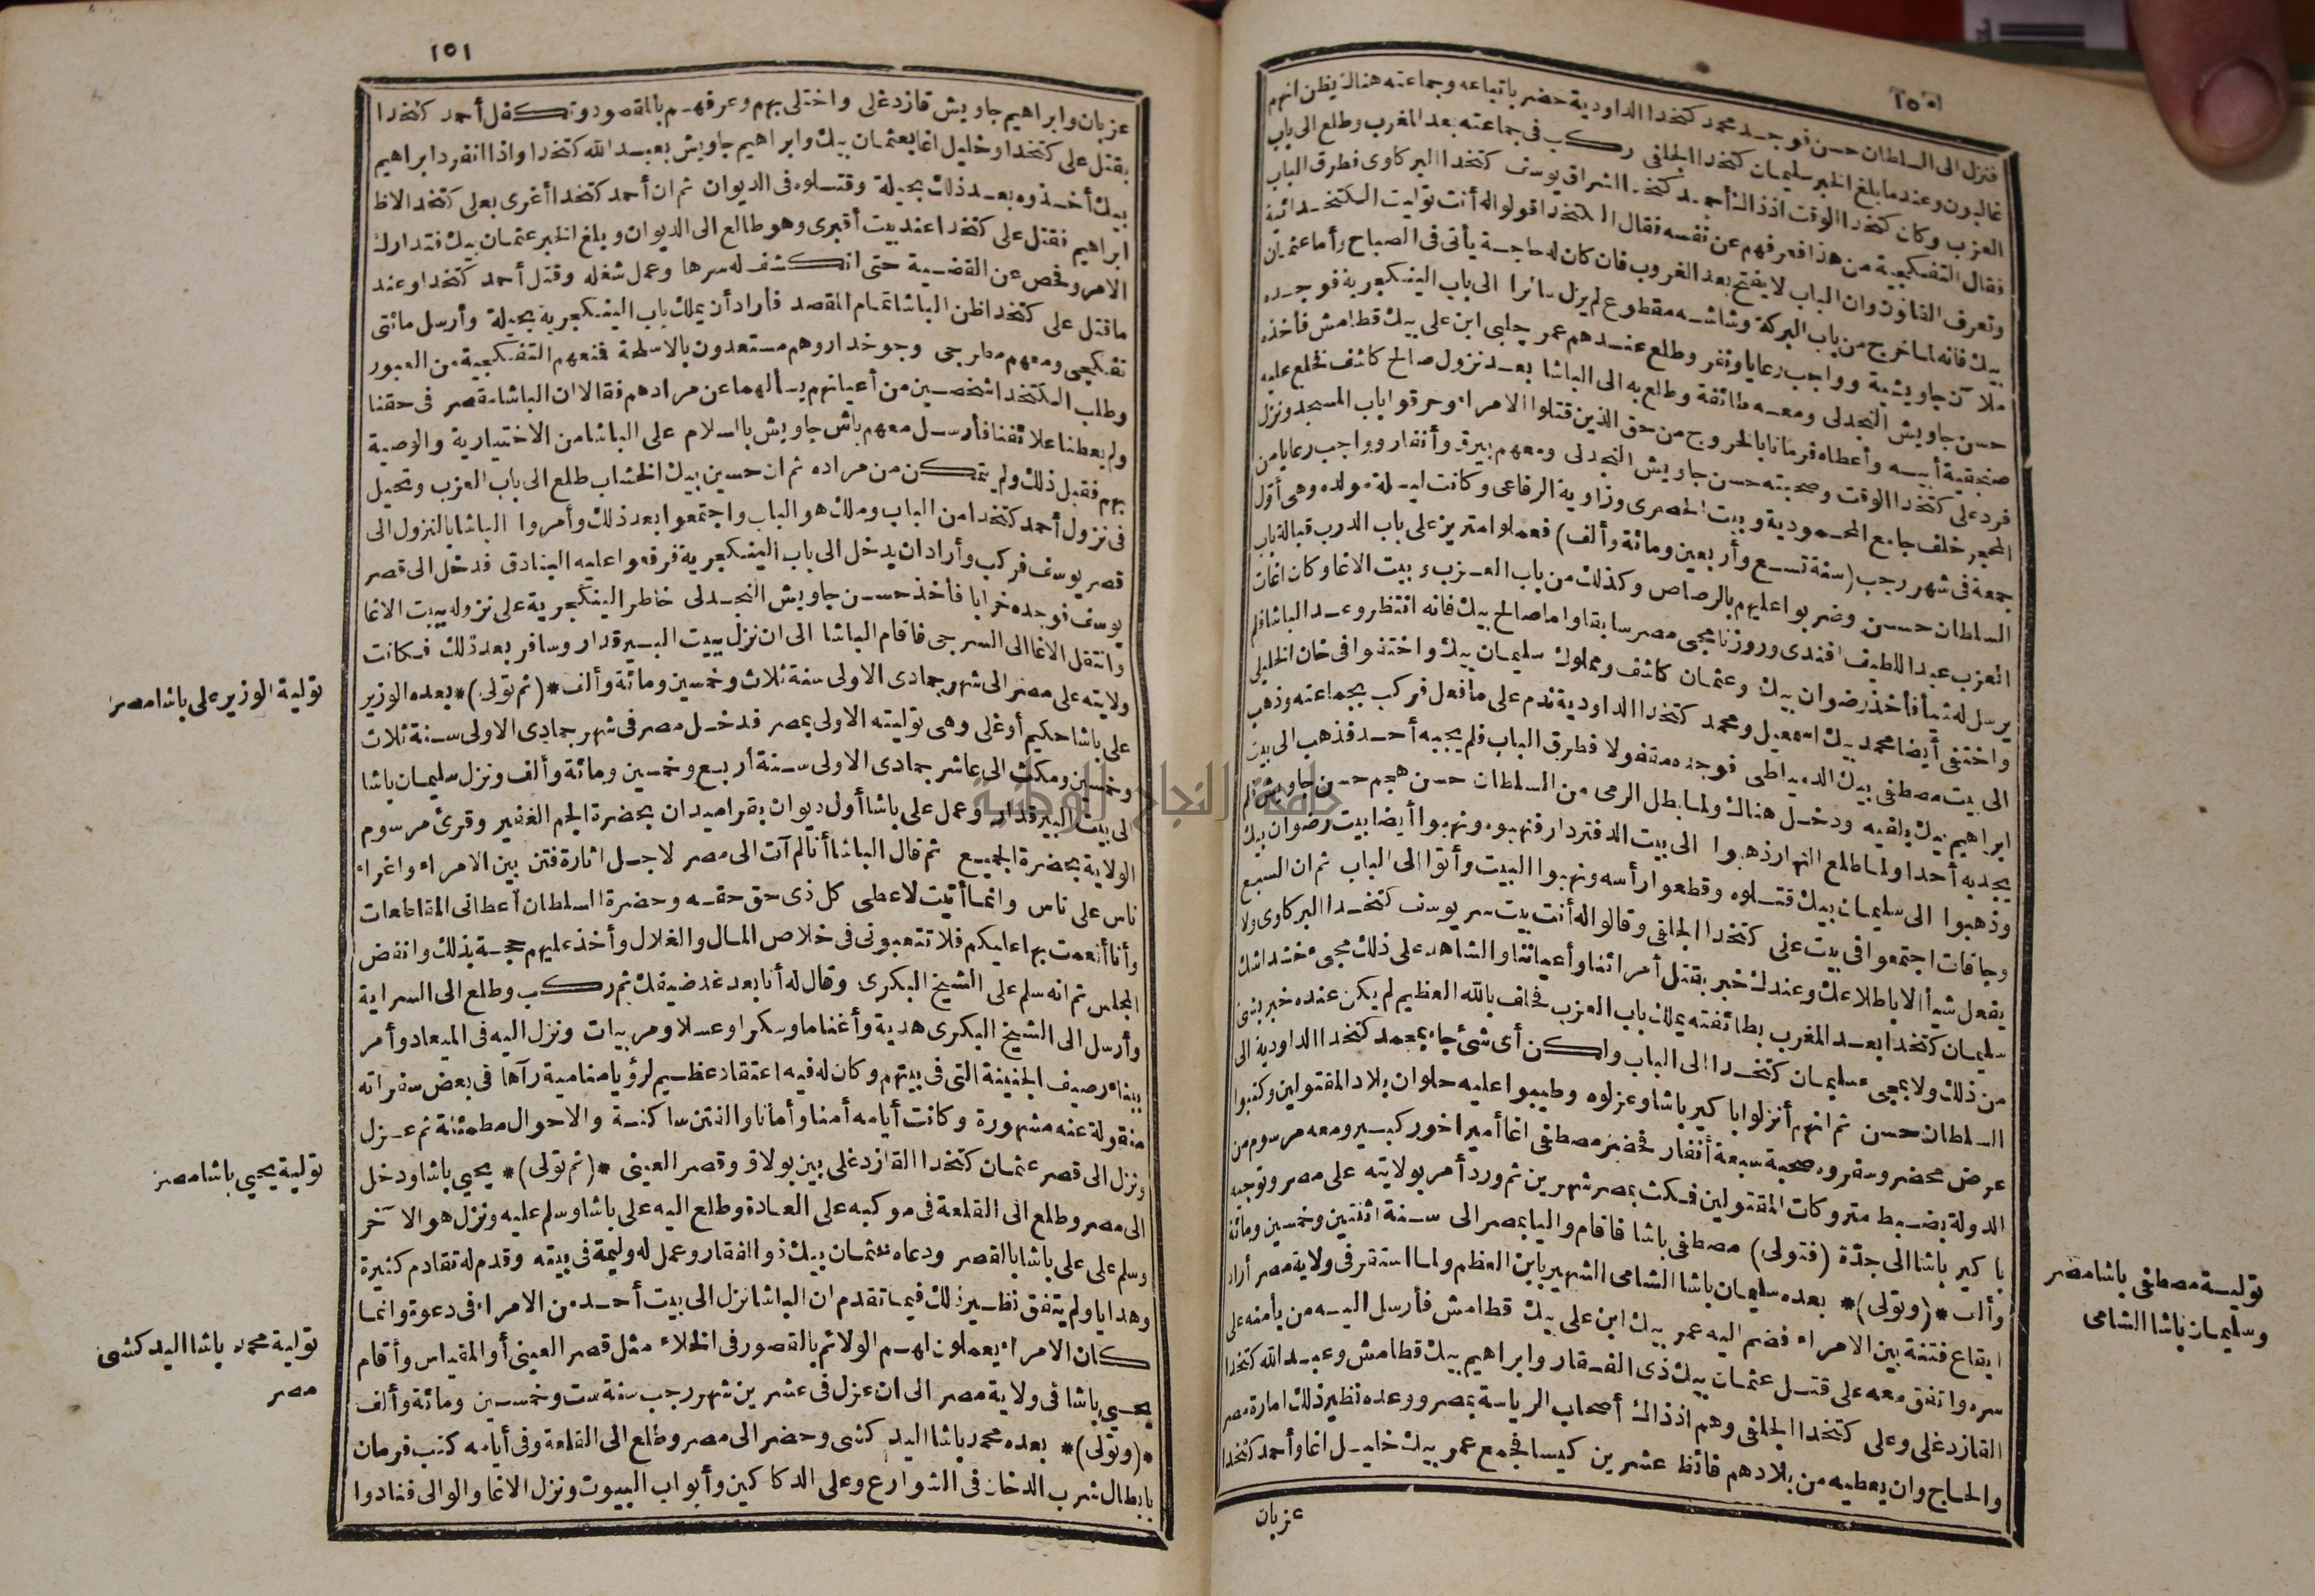 ١٥٠
فنزل الى السلطان حسن فوجد محمد كتخدا الداودية حضر باتباعه وجماعته هناك يظن انهم
غالبون وعندما بلغ الخبر سليمان كتخدا الجلفى ركب فى جماعته بعد المغرب وطلع الى باب
العزب وكان كتخدا الوقت اذذاك أحمد كتخدا اشراق يوسف كتخدا البركاوى فطرق الباب
فقال التفكجية من هذا فعرفهم عن نفسه فقال الكتخدا قولوا له أنت توليت الكتخدائية
وتعرف القانون وان الباب لا يفتح بعد الغروب فان كان له حاجة يأتى فى الصباح وأما عثمان
بيك فانه لما خرج من باب البركة وشاشه مقطوع لم يزل سائرا الى باب الينكجرية فوجده
ملآن جاويشية وواجب رعايا ونفر وطلع عندهم عمر جلبى ابن على بيك قطامش فأخذه
حسن جاويش النجدلى ومعه طائفة وطلع به الى الباشا بعد نزول صالح كاشف فخلع عليه
صنجقية أبيه وأعطاه فرمانا بالخروج من حق الذين قتلوا الامراء وحرقوا باب المسجد ونزل
فرد على كتخدا الوقت وصحبته حسن جاويش النجدلى ومعهم بيرق وأنفار وواجب رعايا من
المحجر خلف جامع المحمودية وبيت الحصرى وزاوية الرفاعى وكانت ليلة مولده وهى أول
جمعة فى شهر رجب (سنة تسع وأربعين ومائة وألف) فعملوا متريز على باب الدرب قبالة باب
السلطان حسن وضربوا عليهم بالرصاص وكذلك من باب العزب وبيت الاغا وكان اغات
العزب عبد اللطيف افندى وروزنامجى مصر سابقا واما صالح بيك فانه انتظر وعد الباشا فلم
يرسل له شيأ فأخذ رضوان بيك وعثمان كاشف ومملوك سليمان بيك واختفوا فى خان الخليلى
واختفى أيضا محمد بيك اسمعيل ومحمد كتخدا الداودية ندم على ما فعل فركب بجماعته وذهب
الى بيت مصطفى بيك الدمياطى فوجده مقفولا فطرق الباب فلم يجبه أحد فذهب الى بيت
ابراهيم بيك بلفيه ودخل هناك ولما بطل الرمى من السلطان حسن هجم حسن جاويش فلم
يجد به أحدا ولما طلع النهار ذهبوا الى بيت الدفتردار فنهبوه ونهبوا أيضا بيت رضوان بيك
وذهبوا الى سليمان بيك فقتلوه وقطعوا رأسه ونهبوا البيت وأتوا الى الباب ثم ان السبع
وجاقات اجتمعوا فى بيت على كتخدا الجلفى وقالوا له أنت بيت سر يوسف كتخدا البركاوى ولا
يفعل شيأ الا باطلاعك وعندك خبر بقتل أمرائنا وأعياننا والشاهد على ذلك مجىء خشداشك
سليمان كتخدا بعد المغرب بطائفته يملك باب العزب فحلف بالله العظيم لم يكن عنده خبر بشئ
من ذلك ولا بمجىء سليمان كتخدا الى الباب ولكن أى شئ جاء بمحمد كتخدا الداودية الى
السلطان حسن ثم انهم أنزلوا باكير باشا وعزلوه وطيبوا عليه حلوان بلاد المقتولين وكتبوا
عرض محضر وسفروه صحبة سبعة أنفار فحضر مصطفى اغا أمير اخور كبير ومعه مرسوم من
الدولة بضبط متروكات المقتولين فمكث بمصر شهرين ثم ورد أمر بولايته على مصر وتوجه
باكير باشا الى جدّة (فتولى) مصطفى باشا فاقام واليا بمصر الى سنة اثنتين وخمسين ومائة
وألف *(وتولى)* بعده سليمان باشا الشامى الشهير بابن العظم ولما استقر فى ولاية مصر أراد
ايقاع فتنة بين الامراء فضم اليه عمر بيك ابن على بيك قطامش فأرسل اليه من يأمنه على
سره واتفق معه على قتل عثمان بيك ذى الفقار وابراهيم بيك قطامش وعبد الله كتخدا
القازدغلى وعلى كتخدا الجلفى وهم اذذاك أصحاب الرياسة بمصر ووعده نظير ذلك امارة مصر
والحاج وان يعطيه من بلادهم فائظ عشرين كيسا فجمع عمر بيك خليل اغا وأحمد كتخدا
عزبان
تولية مصطفى باشا مصر
وسليمان باشا الشامى
١٥١
عزبان وابراهيم جاويش قازدغلى واختلى بهم وعرفهم بالمقصود وتكفل أحمد كتخدا
بقتل على كتخدا وخليل اغا بعثمان بيك وابراهيم جاويش بعبد الله كتخدا واذا انفرد ابراهيم
بيك أخذوه بعد ذلك بحيلة وقتلوه فى الديوان ثم ان أحمد كتخدا أغرى بعلى كتخدا لاظ
ابراهيم فقتل على كتخدا عند بيت أقبرى وهو طالع الى الديوان وبلغ الخبر عثمان بيك فتدارك
الامر وفحص عن القضية حتى انكشف له سرها وعمل شغله وقتل أحمد كتخدا وعند
ما قتل على كتخدا ظن الباشا تمام المقصد فأراد أن يملك باب الينكجرية بحيلة وأرسل مائتى
تفكجى ومعهم مطرجى وجوخدار وهم مستعدون بالاسلحة فنعهم التفكجية من العبور
وطلب الكتخدا شخصين من أعيانهم يسألهما عن مرادهم فقالا ان الباشا مقصر فى حقنا
ولم يعطنا علائفنا فأرسل معهم باش جاويش بالسلام على الباشا من الاختيارية والوصية
بهم فقبل ذلك ولم يتمكن من مراده ثم ان حسين بيك الخشاب طلع الى باب العزب وتحيل
فى نزول أحمد كتخدا من الباب وملك هو الباب واجتمعوا بعد ذلك وأمروا الباشا بالنزول الى
قصر يوسف فركب وأراد ان يدخل الى باب الينكجرية فرفعوا عليه البنادق فدخل الى قصر
يوسف فوجده خرابا فأخذ حسن جاويش النجدلى خاطر الينكجرية على نزوله ببيت الاغا
وانتقل الاغا الى السرجى فاقام الباشا الى ان نزل ببيت البيرقدار وسافر بعد ذلك فكانت
ولايته على مصر الى شهر جمادى الاولى سنة ثلاث وخمسين ومائة وألف *(ثم تولى)* بعده الوزير
على باشا حكيم أوغلى وهى توليته الاولى بمصر فدخل مصر فى شهر جمادى الاولى سنة ثلاث
وخمسين ومكث الى عاشر جمادى الاولى سنة أربع وخمسين ومائة وألف ونزل سليمان باشا
لى بيت البيرقدار وعمل على باشا أول ديوان بقراميدان بحضرة الجم الغفير وقرئ مرسوم
الولاية بحضرة الجميع ثم قال الباشا أنا لم آت الى مصر لاجل اثارة فتن بين الامراء واغراء
ناس على ناس وانما أتيت لاعطى كل ذى حق حقه وحضرة السلطان أعطانى المقاطعات
وأنا أنعمت بها عليكم فلا تتعبونى فى خلاص المال والغلال وأخذ عليهم حجة بذلك وانفض
المجلس ثم انه سلم على الشيخ البكرى وقال له أنا بعد غد ضيفك ثم ركب وطلع الى السراية
وأرسل الى الشيخ البكرى هدية وأغناما وسكرا وعسلا ومربيات ونزل اليه فى الميعاد وأمر
ببناء رصيف الجنينة التى فى بيتهم وكان له فيه اعتقاد عظيم لرؤيا منامية رآها فى بعض سفراته
منقولة عنه مشهورة وكانت أيامه أمنا وأمانا والفتن ساكنة والاحوال مطمئنة ثم عزل
ونزل الى قصر عثمان كتخدا القازدغلى بين بولاق وقصر العينى *(ثم تولى)* يحيى باشا ودخل
الى مصر وطلع الى القلعة فى موكبه على العادة وطلع اليه على باشا وسلم عليه ونزل هو الا خر
وسلم على على باشا بالقصر ودعاه عثمان بيك ذو الفقار وعمل له وليمة فى بيته وقدم له تقادم كثيرة
وهدايا ولم يتفق نظير ذلك فيما تقدم ان الباشا نزل الى بيت أحد من الامراء فى دعوة وانما
كان الامراء يعملون لهم الولائم بالقصور فى الخلاء مثل قصر العينى أو المقياس وأقام
يحيى باشا فى ولاية مصر الى ان عزل فى عشرين شهر رجب سنة ست وخمسين ومائة وألف
*(وتولى)* بعده محمد باشا اليدكشى وحضر الى مصر وطلع الى القلعة وفى أيامه كتب فرمان
بابطال شرب الدخان فى الشوارع وعلى الدكاكين وأبواب البيوت ونزل الاغا والوالى فنادوا
تولية الوزير على باشا مصر
تولية يحيى باشا مصر
تولية محمد باشا اليدكشى
مصر